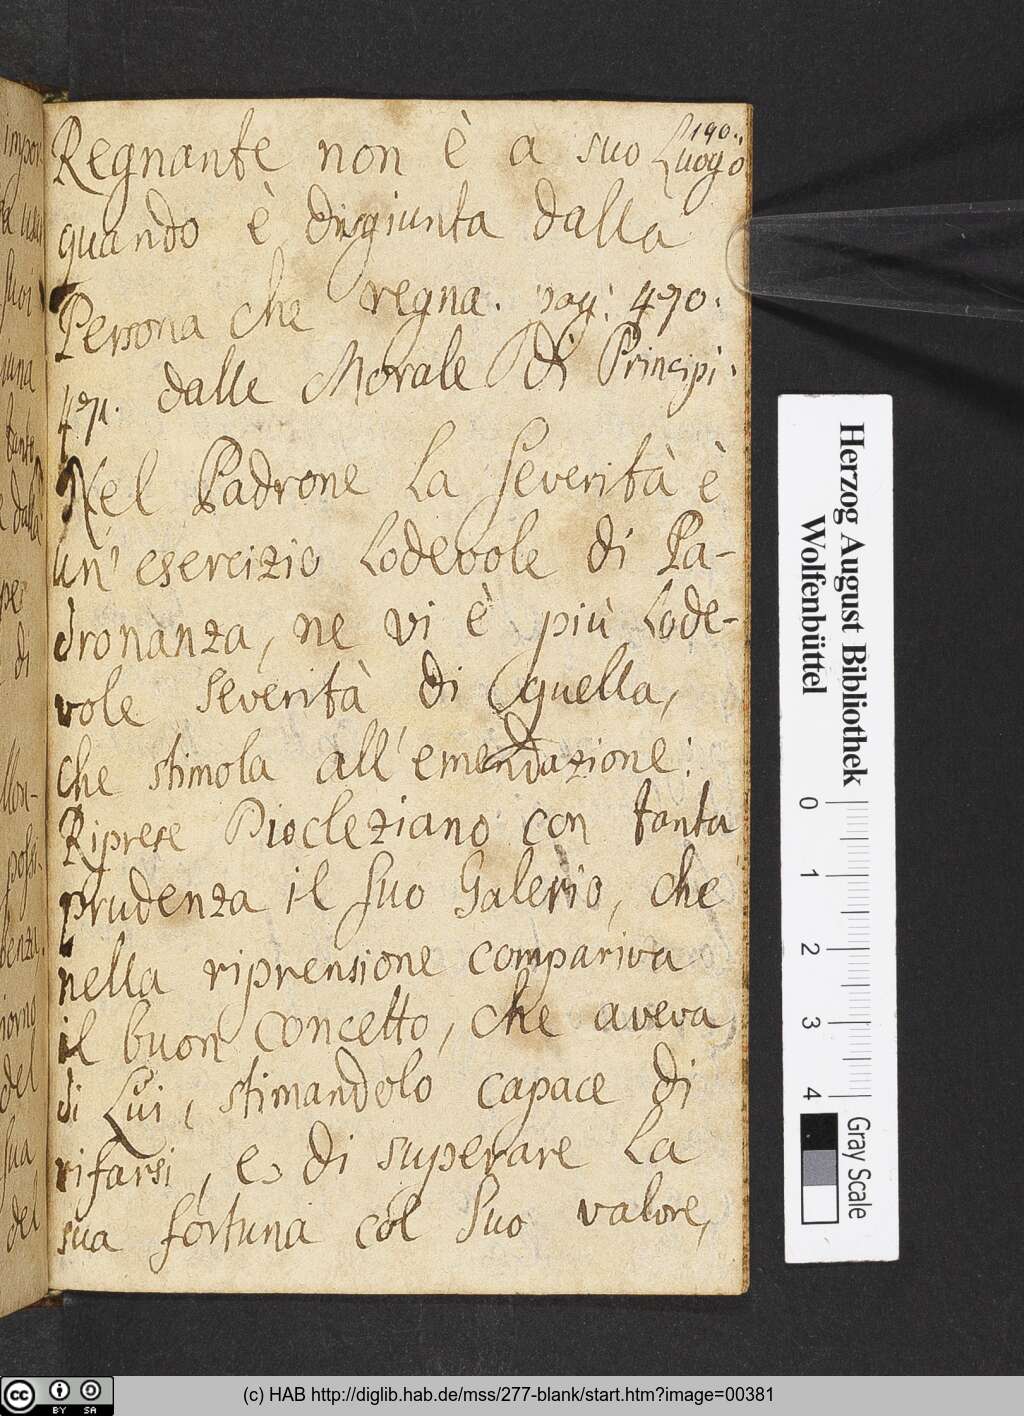 190.
Regnante non è a suo Luogo
quando è disgiunta dalla
Persona che regna. pag: 470.
471. dalle Morale di Principi.
Nel Padrone la severità è
un' esercizio Lodevole di Pa-
dronanza, ne vi è più Lode-
vole severità di quella,
che stimola all' emendazione:
Riprese Diocleziano con tanta
prudenza il suo Galerio, che
nella riprensione compariva
il buon concetto, che aveva
di Lui, stimandolo capace di
rifarsi, e di superare la
sua fortuna col suo valore,
Herzog August Bibliothek
Wolfenbüttel
0 1 2 3 4
Gray Scale
impor
suoi
tanto
dalla
per
di
possi-
giorno
del
sua
del
cc BY SA
(c) HAB http://diglib.hab.de/mss/277-blank/start.htm?image=00381